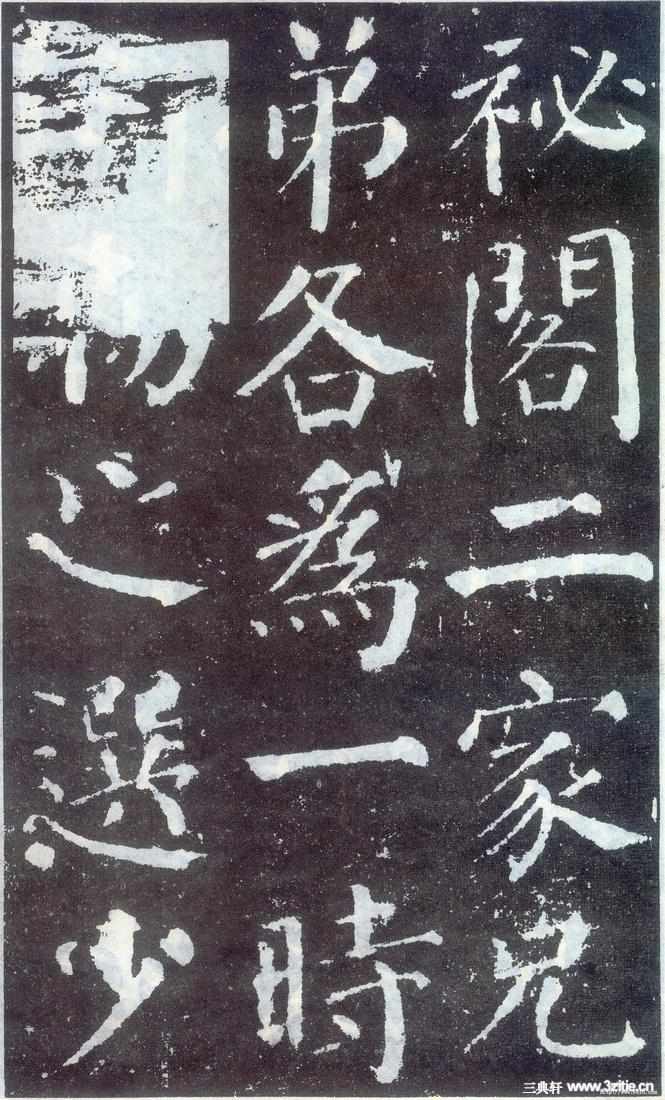 祕閣二家兄
弟各為一時
物之選少
三典轩 www.3zitie.cn